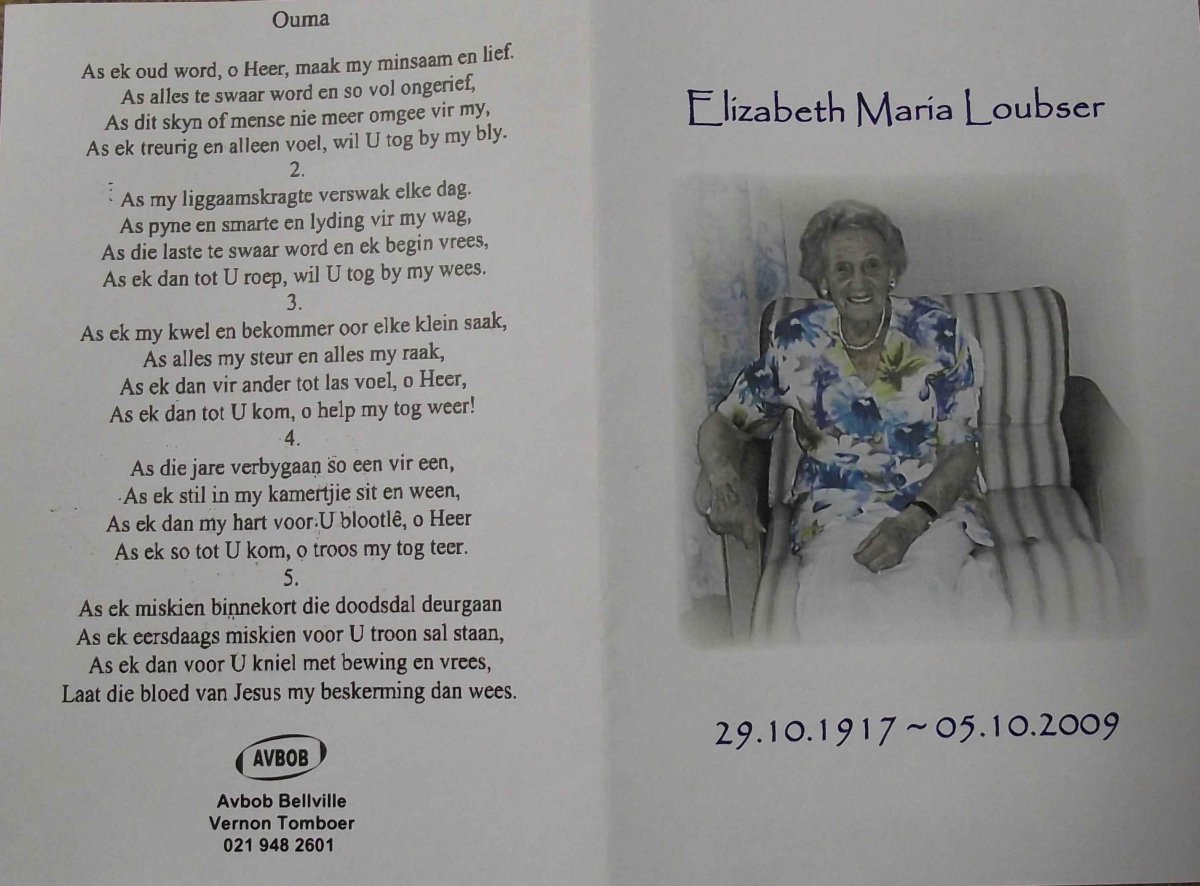 Ouma
As ek oud word, o Heer, maak my minsaam en lief.
As alles te swaar word en so vol ongerief,
As dit skyn of mense nie meer omgee vir my,
As ek treurig en alleen voel, wil U tog by my bly.
2.
As my liggaamskragte verswak elke dag.
As pyne en smarte en lyding vir my wag,
As die laste te swaar word en ek begin vrees,
As ek dan tot U roep, wil U tog by my wees.
3.
As ek my kwel en bekommer oor elke klein saak,
As alles my steur en alles my raak,
As ek dan vir ander tot las voel, o Heer,
As ek dan tot U kom, o help my tog weer!
4.
As die jare verbygaan so een vir een,
As ek stil in my kamertjie sit en ween,
As ek dan my hart voor U blootlê, o Heer
As ek so tot U kom, o troos my tog teer.
5.
As ek miskien binnekort die doodsdal deurgaan
As ek eersdaags miskien voor U troon sal staan,
As ek dan voor U kniel met bewing en vrees,
Laat die bloed van Jesus my beskerming dan wees.
AVBOB
Avbob Bellville
Vernon Tomboer
021 948 2601
Elizabeth Maria Loubser
29.10.1917 ~ 05.10.2009